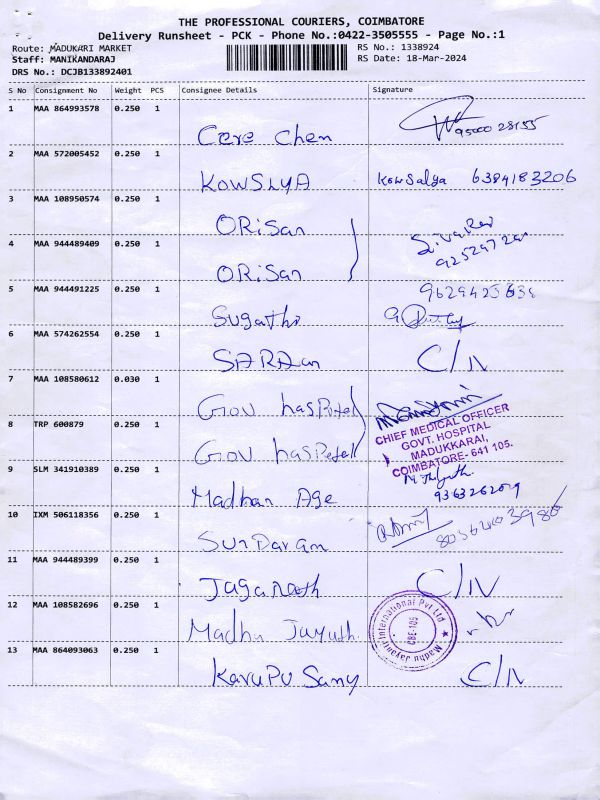 THE PROFESSIONAL COURIERS, COIMBATORE
Delivery Runsheet - PCK - Phone No.:0422-3505555 - Page No.:1
Route: MADUKARI MARKET
RS No.: 1338924
Staff: MANIKANDARAJ
RS Date: 18-Mar-2024
DRS No.: DCJB133892401
S No Consignment No Weight PCS Consignee Details Signature
1 MAA 864993578 0.250 1
Cere Chen
2 MAA 572005452 0.250 1
KOWSLYA Kowsalya 6384183206
3 MAA 108950574 0.250 1
ORiSan
4 MAA 944489409 0.250 1
ORiSan
5 MAA 944491225 0.250 1
Sugathi
6 MAA 574262554 0.250 1
SARAan C/N
7 MAA 108580612 0.030 1
Gov hasPitel
8 TRP 600879 0.250 1
Gov hasPetel
CHIEF MEDICAL OFFICER
GOVT. HOSPITAL
MADUKKARAI,
COIMBATORE- 641 105.
9 SLM 341910389 0.250 1
Madhan Age
10 IXM 506118356 0.250 1
SunDaram
11 MAA 944489399 0.250 1
Jaganath C/N
12 MAA 108582696 0.250 1
Madhu Jayuth
Madhu Jayanti International Pvt Ltd
CBE-105
13 MAA 864093063 0.250 1
KaruPu Samy C/N